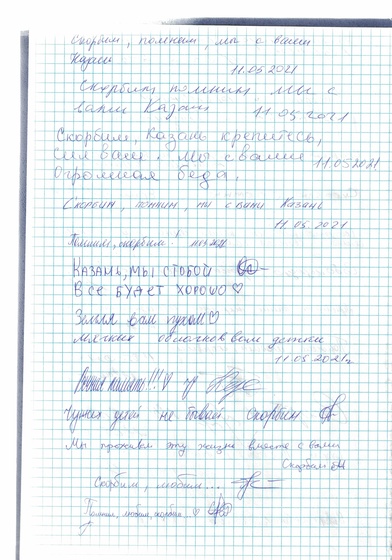 Скорбим, помним, мы с вами
Казань
11.05.2021
Скорбим помним мы с
вами Казань 11 05 2021
Скорбим, Казань крепитесь,
сил вам. Мы с вами 11.05 2021
Огромная беда.
Скорбим, помним, мы с вами Казань
11.05.2021
Помним, скорбим!
Казань, мы с тобой
Все будет хорошо♡
Земля вам пухом♡
мягких облачков вам детки
11.05 2021г.
Вечная память!!!♡
Чужих детей не бывает Скорбим
Мы проживем эту жизнь вместе с вами
Скорбим
Скорбим, любим...
Помним, любим, скорбим...♡